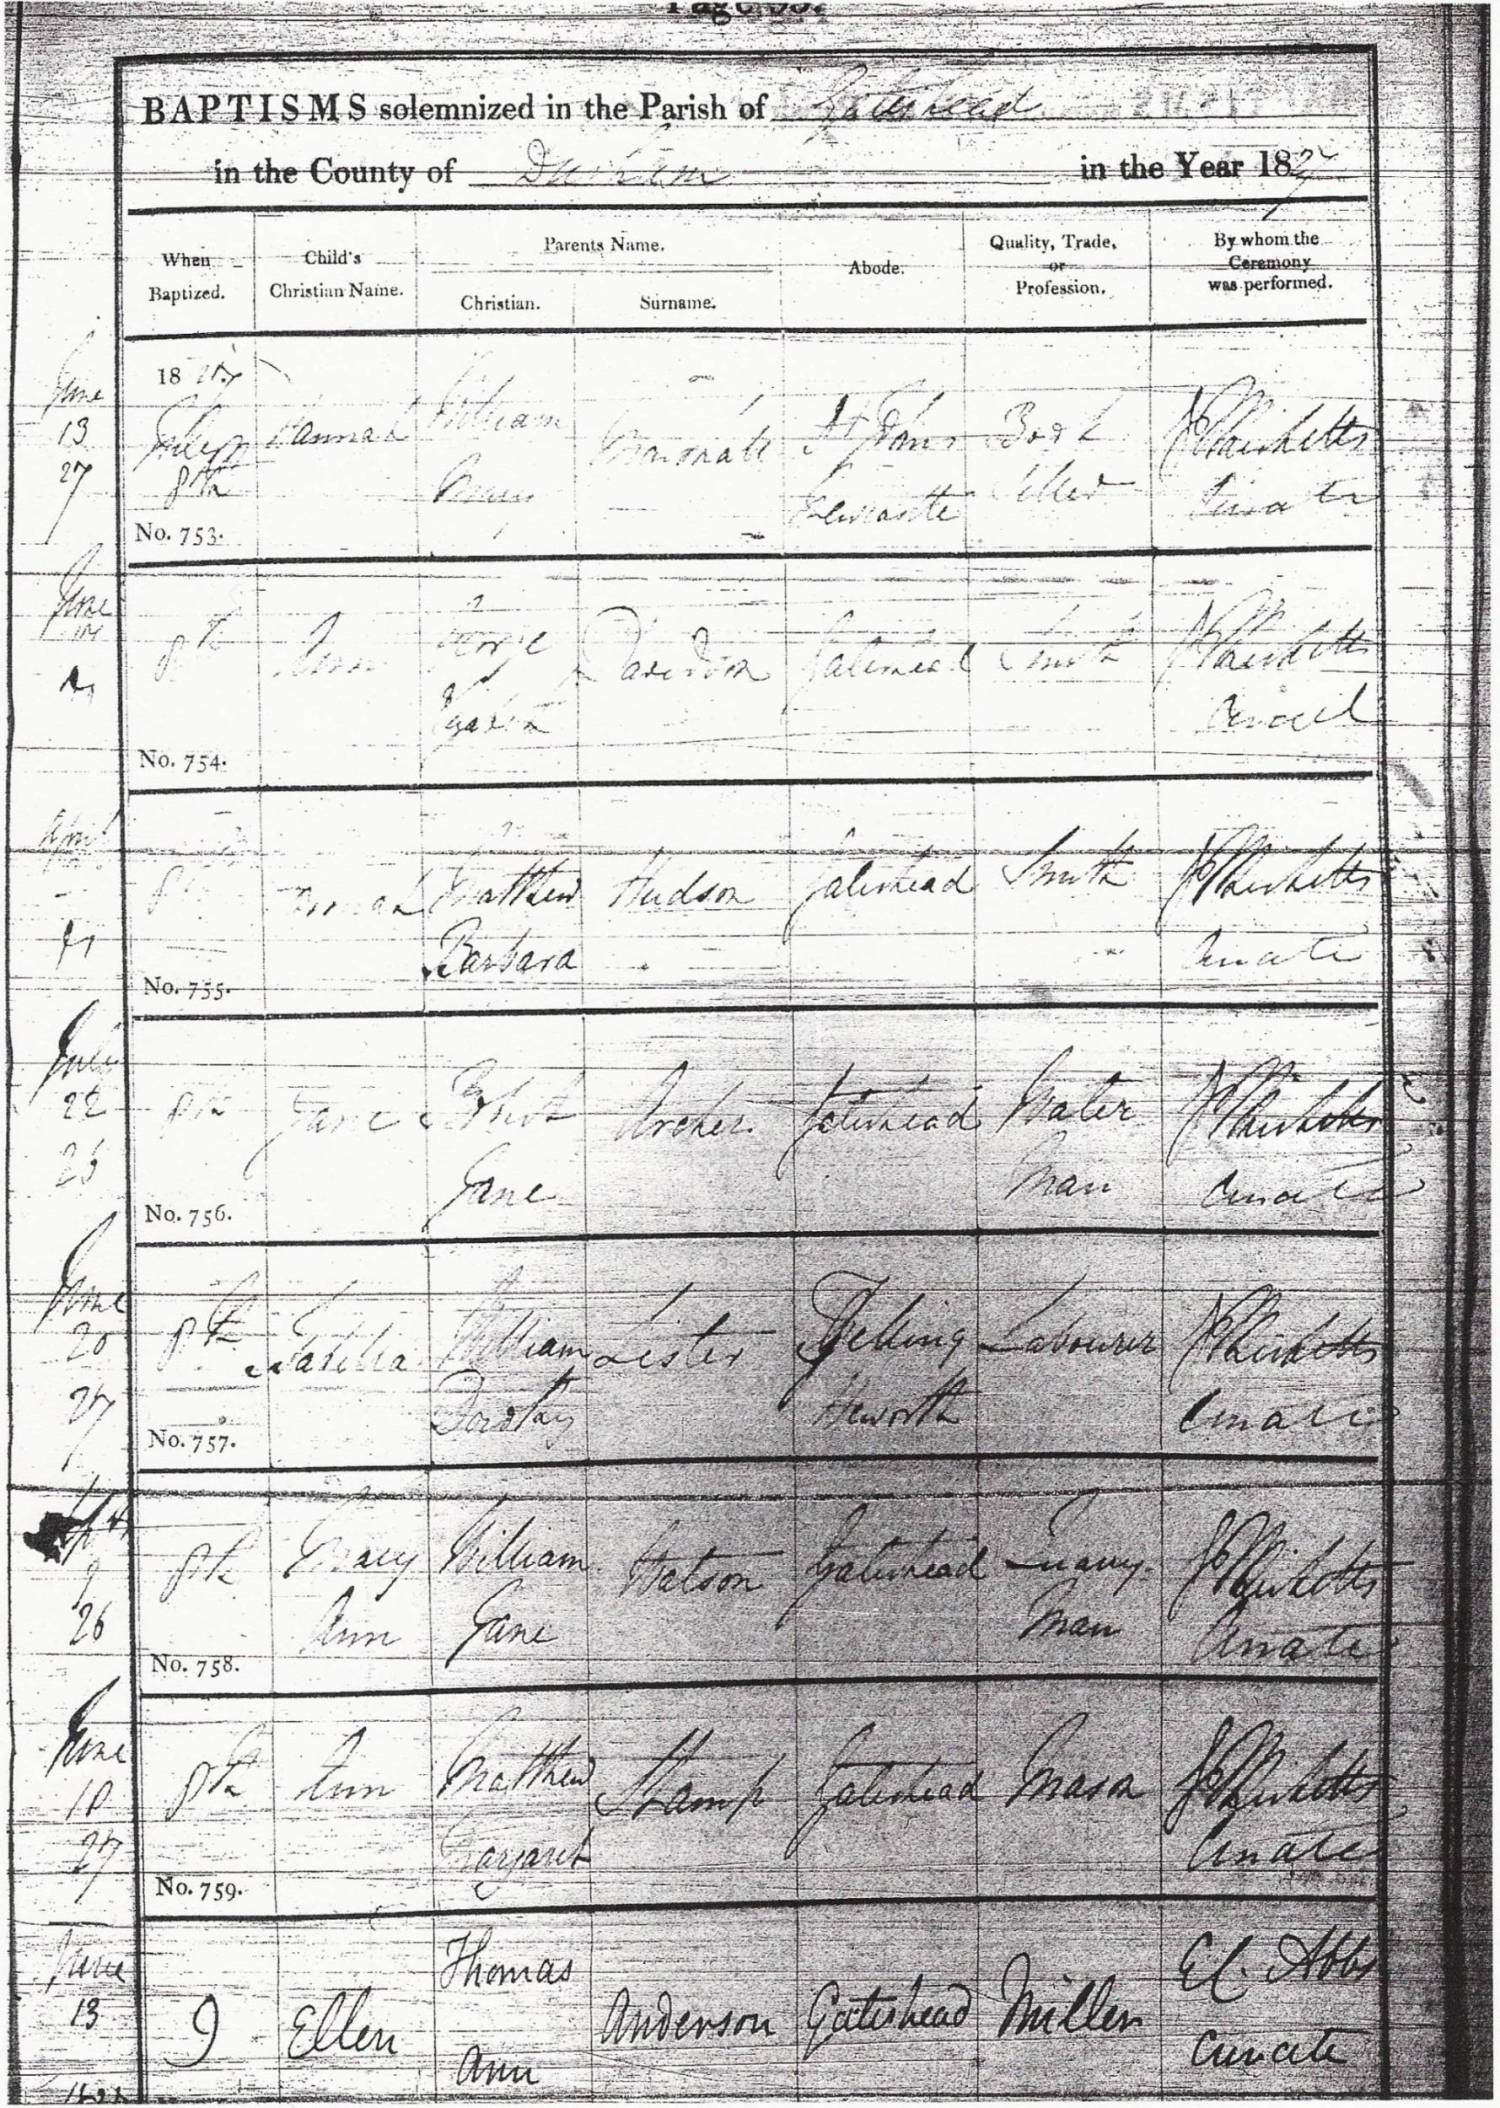 BAPTISMS solemnized in the Parish of Gateshead
in the County of Durham in the Year 1827
When Baptized. Child's Christian Name. Parents Name. Christian. Surname. Abode. Quality, Trade, or Profession. By whom the Ceremony was performed.
June 1827
13 Hannah William Marshall St Johns Book
27 8th Mary Newcastle Seller Curate
No. 753.
June 8th Ann George Davidson Gateshead Smith
No. 754.
8th Hannah Matthew Hudson Gateshead Smith
Barbara Curate
No. 755.
July
22 8th Jane Robert Archer Gateshead Water
26 Jane Man Curate
No. 756.
June
20 8th Isabella William Lister Felling Labourer
27 Dorothy Heworth Curate
No. 757.
9 8th Mary William Watson Gateshead Quarry
26 Ann Jane Man Curate
No. 758.
June
18 8th Ann Matthew Stamp Gateshead Mason
27 Margaret Curate
No. 759.
June Thomas El. Abbs
13 9 Ellen Anderson Gateshead Miller
Ann Curate